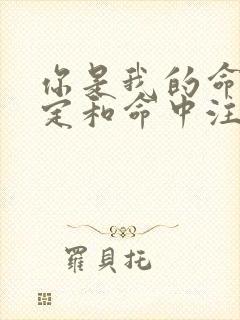 你是我的命
定和命中注
羅貝托